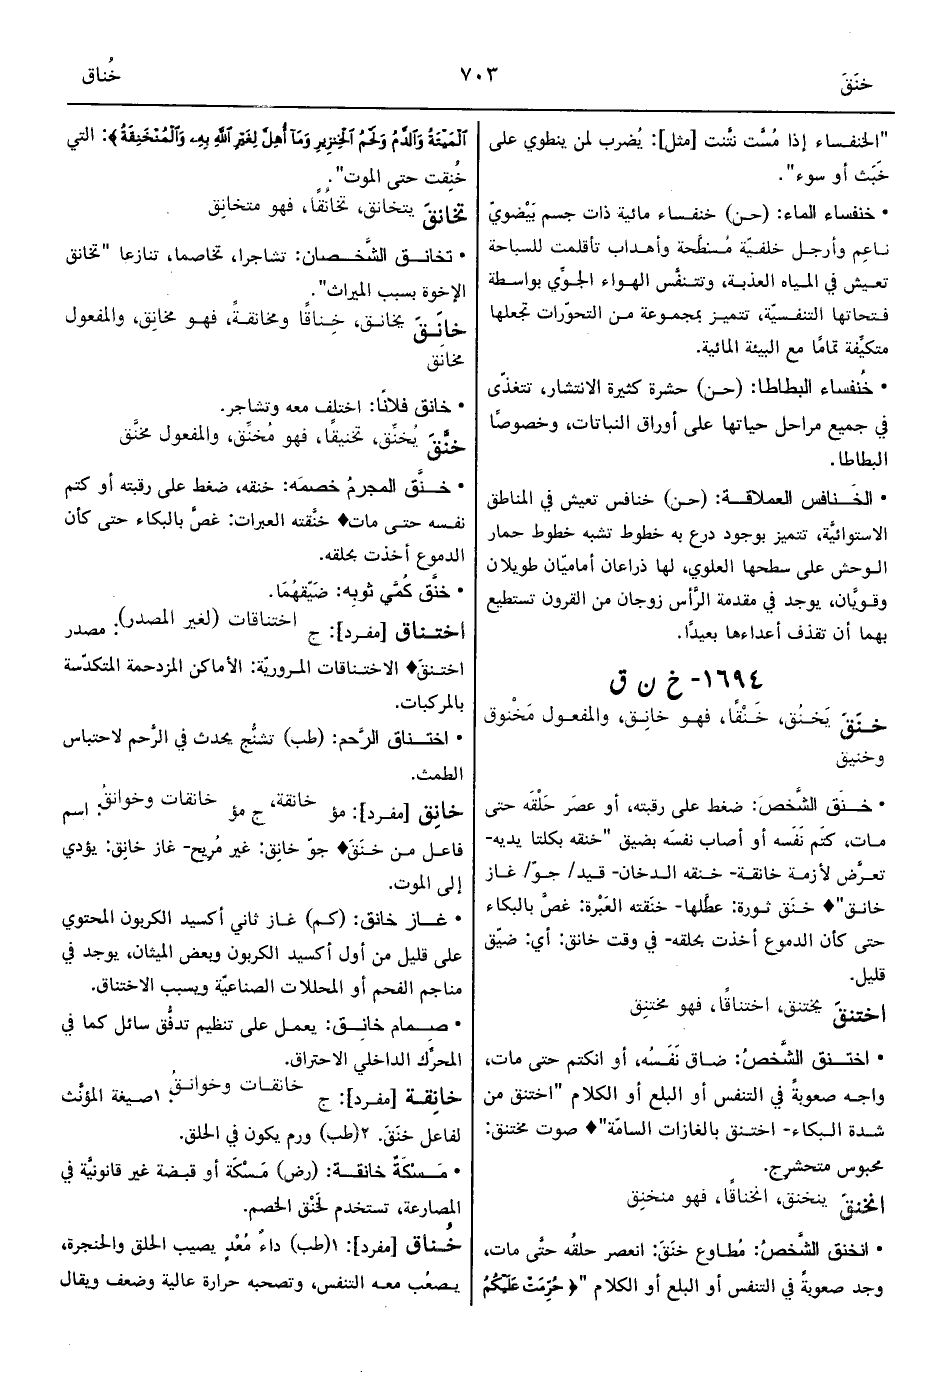 خنَقَ
٧٠٣
خُناق
"الخنفساء إذا مُسَّت نتَّنت [مثل]: يُضرب لمن ينطوي على
خَبَث أو سوء".
• خنفساء الماء: (حن) خنفساء مائية ذات جسم بَيْضويّ
ناعم وأرجل خلفيّة مُسَطَّحة وأهداب تأقلمت للسباحة
تعيش في المياه العذبة، وتتنفَّس الهواء الجوِّي بواسطة
فتحاتها التنفسيّة، تتميز بمجموعة من التحوّرات تجعلها
متكيِّفة تمامًا مع البيئة المائية.
• خُنفساء البطاطا: (حن) حشرة كثيرة الانتشار، تتغذّى
في جميع مراحل حياتها على أوراق النباتات، وخصوصًا
البطاطا.
• الخَنافس العملاقة: (حن) خنافس تعيش في المناطق
الاستوائيَّة، تتميز بوجود درع به خطوط تشبه خطوط حمار
الوحش على سطحها العلوي، لها ذراعان أماميّان طويلان
وقويَّان، يوجد في مقدمة الرَّأس زوجان من القرون تستطيع
بهما أن تقذف أعداءها بعيدًا.
١٦٩٤- خ ن ق
خنَقَ يَخنُق، خَنْقًا، فهو خانِق، والمفعول مَخْنوق
وخنيق
• خنَق الشَّخصَ: ضغط على رقبته، أو عصَر حَلْقَه حتى
مات، كتَم نَفَسه أو أصاب نفسَه بضيق "خنقه بكلتا يديه-
تعرَّض لأزمة خانقة- خنقه الدخان- قيد/ جوّ/ غاز
خانق" ♦ خنَق ثورة: عطَّلها- خنَقته العَبْرة: غصَّ بالبكاء
حتى كأن الدموع أخذت بحلقه- في وقت خانق: أي: ضيّق
قليل.
اختنقَ يختنق، اختناقًا، فهو مختنِق
• اختنق الشَّخصُ: ضاق نَفَسُه، أو انكتم حتى مات،
واجه صعوبةً في التنفس أو البلع أو الكلام "اختنق من
شدة البكاء- اختنق بالغازات السامّة" ♦ صوت مختنق:
محبوس متحشرج.
انخنقَ ينخنق، انخناقًا، فهو منخنِق
• انخنق الشَّخصُ: مُطاوع خنَقَ: انعصر حلقُه حتَّى مات،
وجد صعوبةً في التنفس أو البلع أو الكلام "﴿ حُرِّمَتْ عَلَيْكُمُ
الْمَيْتَةُ وَالدَّمُ وَلَحْمُ الْخِنزِيرِ وَمَآ أُهِلَّ لِغَيْرِ اللَّهِ بِهِ وَالْمُنْخَنِقَةُ ﴾: التي
خُنِقت حتى الموت".
تخانقَ يتخانق، تخانُقًا، فهو متخانِق
• تخانق الشَّخصان: تشاجرا، تخاصما، تنازعا "تخانق
الإخوة بسبب الميراث".
خانَقَ يخانق، خِناقًا ومخانقةً، فهو مخانِق، والمفعول
مخانَق
• خانق فلانًا: اختلف معه وتشاجر.
خنَّقَ يُخنِّق، تخنيقًا، فهو مُخنِّق، والمفعول مخنَّق
• خنَّق المجرمُ خصمَه: خنقه، ضغط على رقبته أو كتم
نفسه حتى مات ♦ خنَّقته العبرات: غصَّ بالبكاء حتى كأن
الدموع أخذت بحلقه.
• خنَّق كُمَّي ثوبِه: ضَيَّقهُمَا.
اختناق [مفرد]: ج اختناقات (لغير المصدر): مصدر
اختنقَ ♦ الاختناقات المروريّة: الأماكن المزدحمة المتكدّسة
بالمركبات.
• اختناق الرَّحم: (طب) تشنُّج يحدث في الرَّحم لاحتباس
الطمث.
خانِق [مفرد]: مؤ خانقة، ج مؤ خانقات وخوانقُ: اسم
فاعل من خنَقَ ♦ جوّ خانِق: غير مُريح- غاز خانِق: يؤدي
إلى الموت.
• غاز خانق: (كم) غاز ثاني أكسيد الكربون المحتوي
على قليل من أول أكسيد الكربون وبعض الميثان، يوجد في
مناجم الفحم أو المحللات الصناعيّة ويسبب الاختناق.
• صمام خانِق: يعمل على تنظيم تدفُّق سائل كما في
المحرِّك الداخلي الاحتراق.
خانِقة [مفرد]: ج خانقات وخوانقُ: ١صيغة المؤنَّث
لفاعل خنَقَ. ٢(طب) ورم يكون في الحلق.
• مَسْكَةٌ خانقة: (رض) مَسْكَة أو قبضة غير قانونيَّة في
المصارعة، تستخدم لخَنْق الخصم.
خُناق [مفرد]: ١(طب) داءٌ مُعْدٍ يصيب الحلق والحنجرة،
يصعُب معه التنفس، وتصحبه حرارة عالية وضعف ويقال